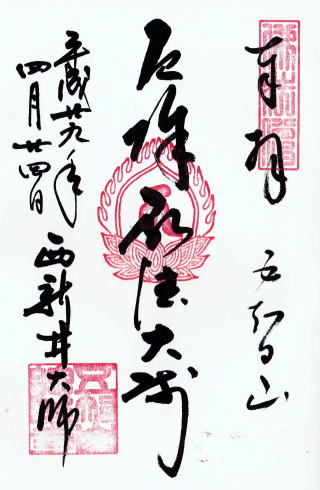 奉拝
五智山
厄除弘法大師
平成廿九年
四月廿四日
西新井大師